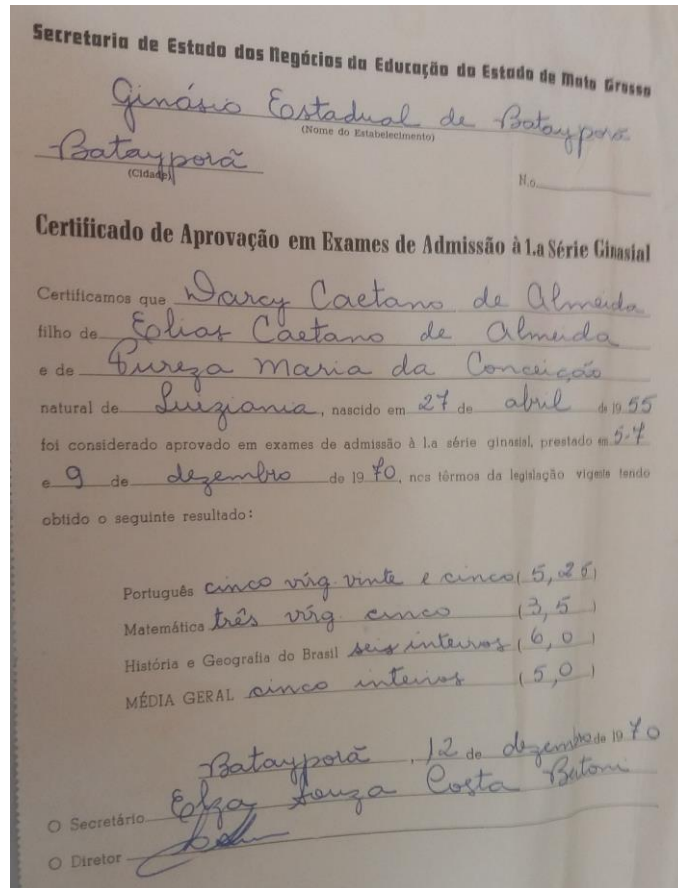 Secretaria de Estado dos Negócios da Educação do Estado de Mato Grosso
Ginásio Estadual de Batayporã
(Nome do Estabelecimento)
Batayporã
(Cidade)
N.o
Certificado de Aprovação em Exames de Admissão à 1.a Série Ginasial
Certificamos que Darcy Caetano de Almeida
filho de Elias Caetano de Almeida
e de Pureza Maria da Conceição
natural de Luiziania, nascido em 27 de abril de 1955
foi considerado aprovado em exames de admissão à 1.a série ginasial, prestado em 5-7
e 9 de dezembro de 1970, nos têrmos da legislação vigente tendo
obtido o seguinte resultado:
Português cinco virg. vinte e cinco (5,25)
Matemática três virg. cinco (3,5)
História e Geografia do Brasil seis inteiros (6,0)
MÉDIA GERAL cinco inteiros (5,0)
Batayporã, 12 de dezembro de 1970
O Secretário Elza Souza Costa
O Diretor